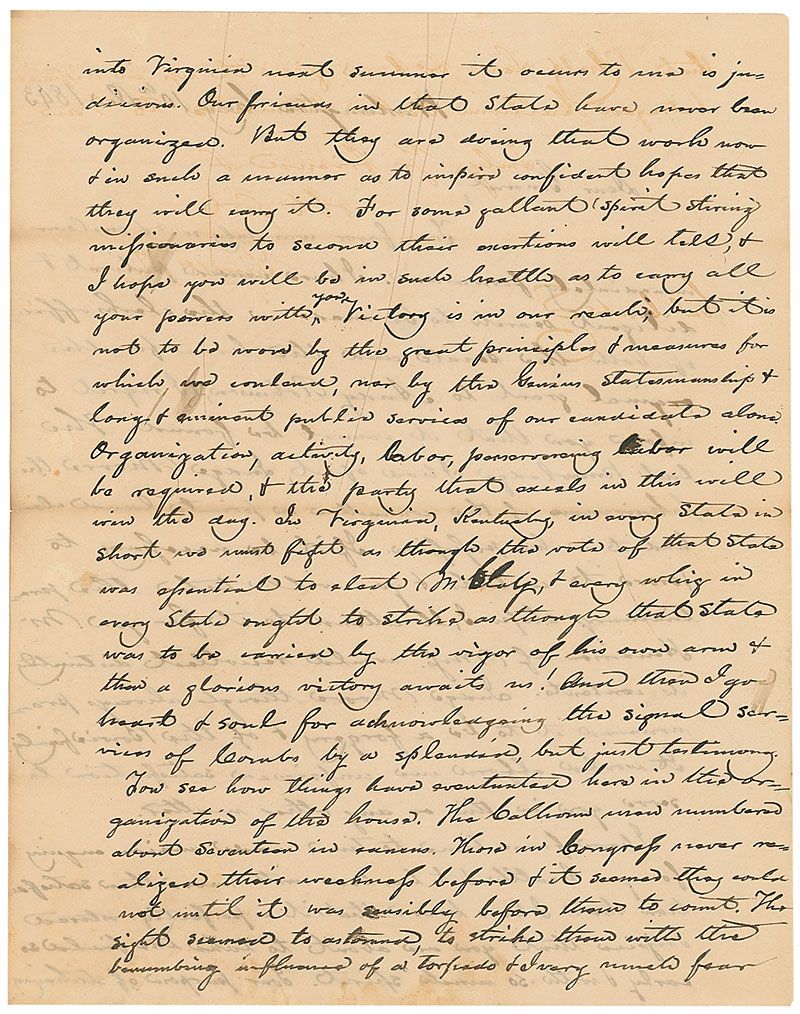 into Virginia next summer it occurs to me is ju-
dicious. Our friends in that State have never been
organized. But they are doing that work now
& in such a manner as to inspire confident hopes that
they will carry it. For some gallant spirit stiring
missionaries to second their exertions will tell, &
I hope you will be in such health as to carry all
your powers with you. Victory is in our reach, but it is
not to be won by the great principles & measures for
which we contend, nor by the Genius Statesmanship &
long & eminent public services of our candidate alone.
Organization, activity, labor, perservering labor will
be required, & the party that excels in this will
win the day. In Virginia, Kentucky, in every State in
short we must fight as though the vote of that State
was essential to elect Mr Clay, & every whig in
every State ought to strike as though that State
was to be carried by the vigor of his own arm &
then a glorious victory awaits us! And then I go
heart & soul for acknowledgeing the signal ser-
vices of Combs by a splendid, but just testimony.
You see how things have eventuated here in the or-
ganization of the house. The Calhoun men numbered
about Seventeen in caucus. Those in Congress never re-
alized their weakness before & it seemed they could
not until it was sensibly before them to count. The
sight seemed to astound, to strike them with the
benumbing influence of a torpedo & I very much fear